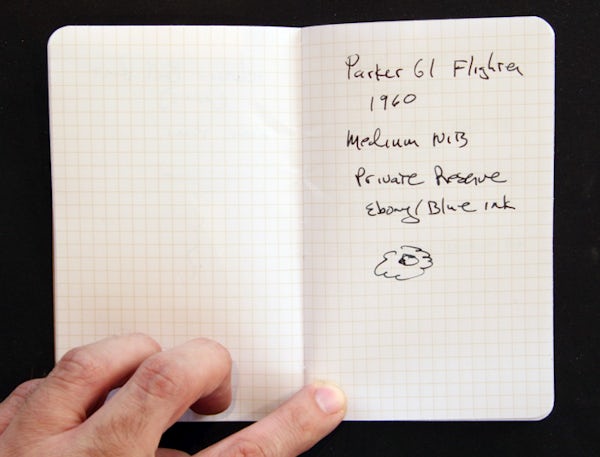 Parker 61 Flighter
1960
Medium NIB
Private Reserve
Ebony/Blue ink